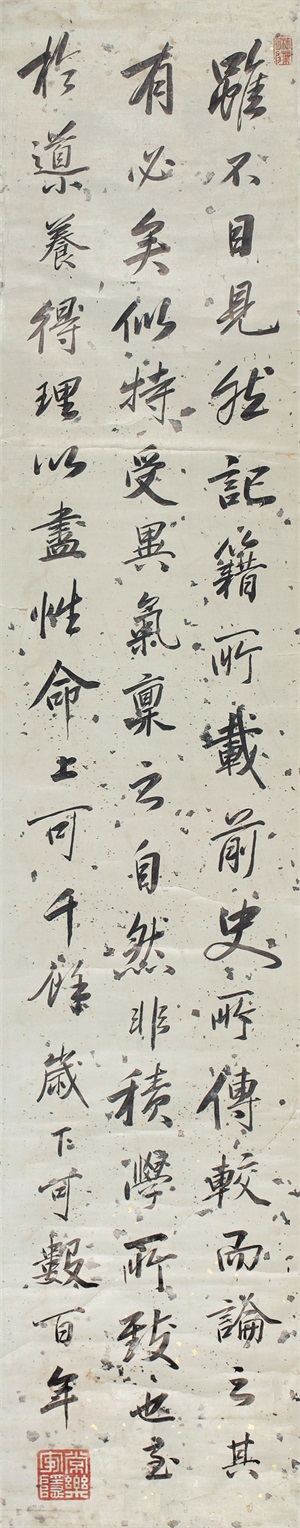 雖不目見然記籍所載前史所傳較而論之其
有必矣似特受異氣稟之自然非積學所致也至
於導養得理以盡性命上可千餘歲下可數百年
常樂軍隱